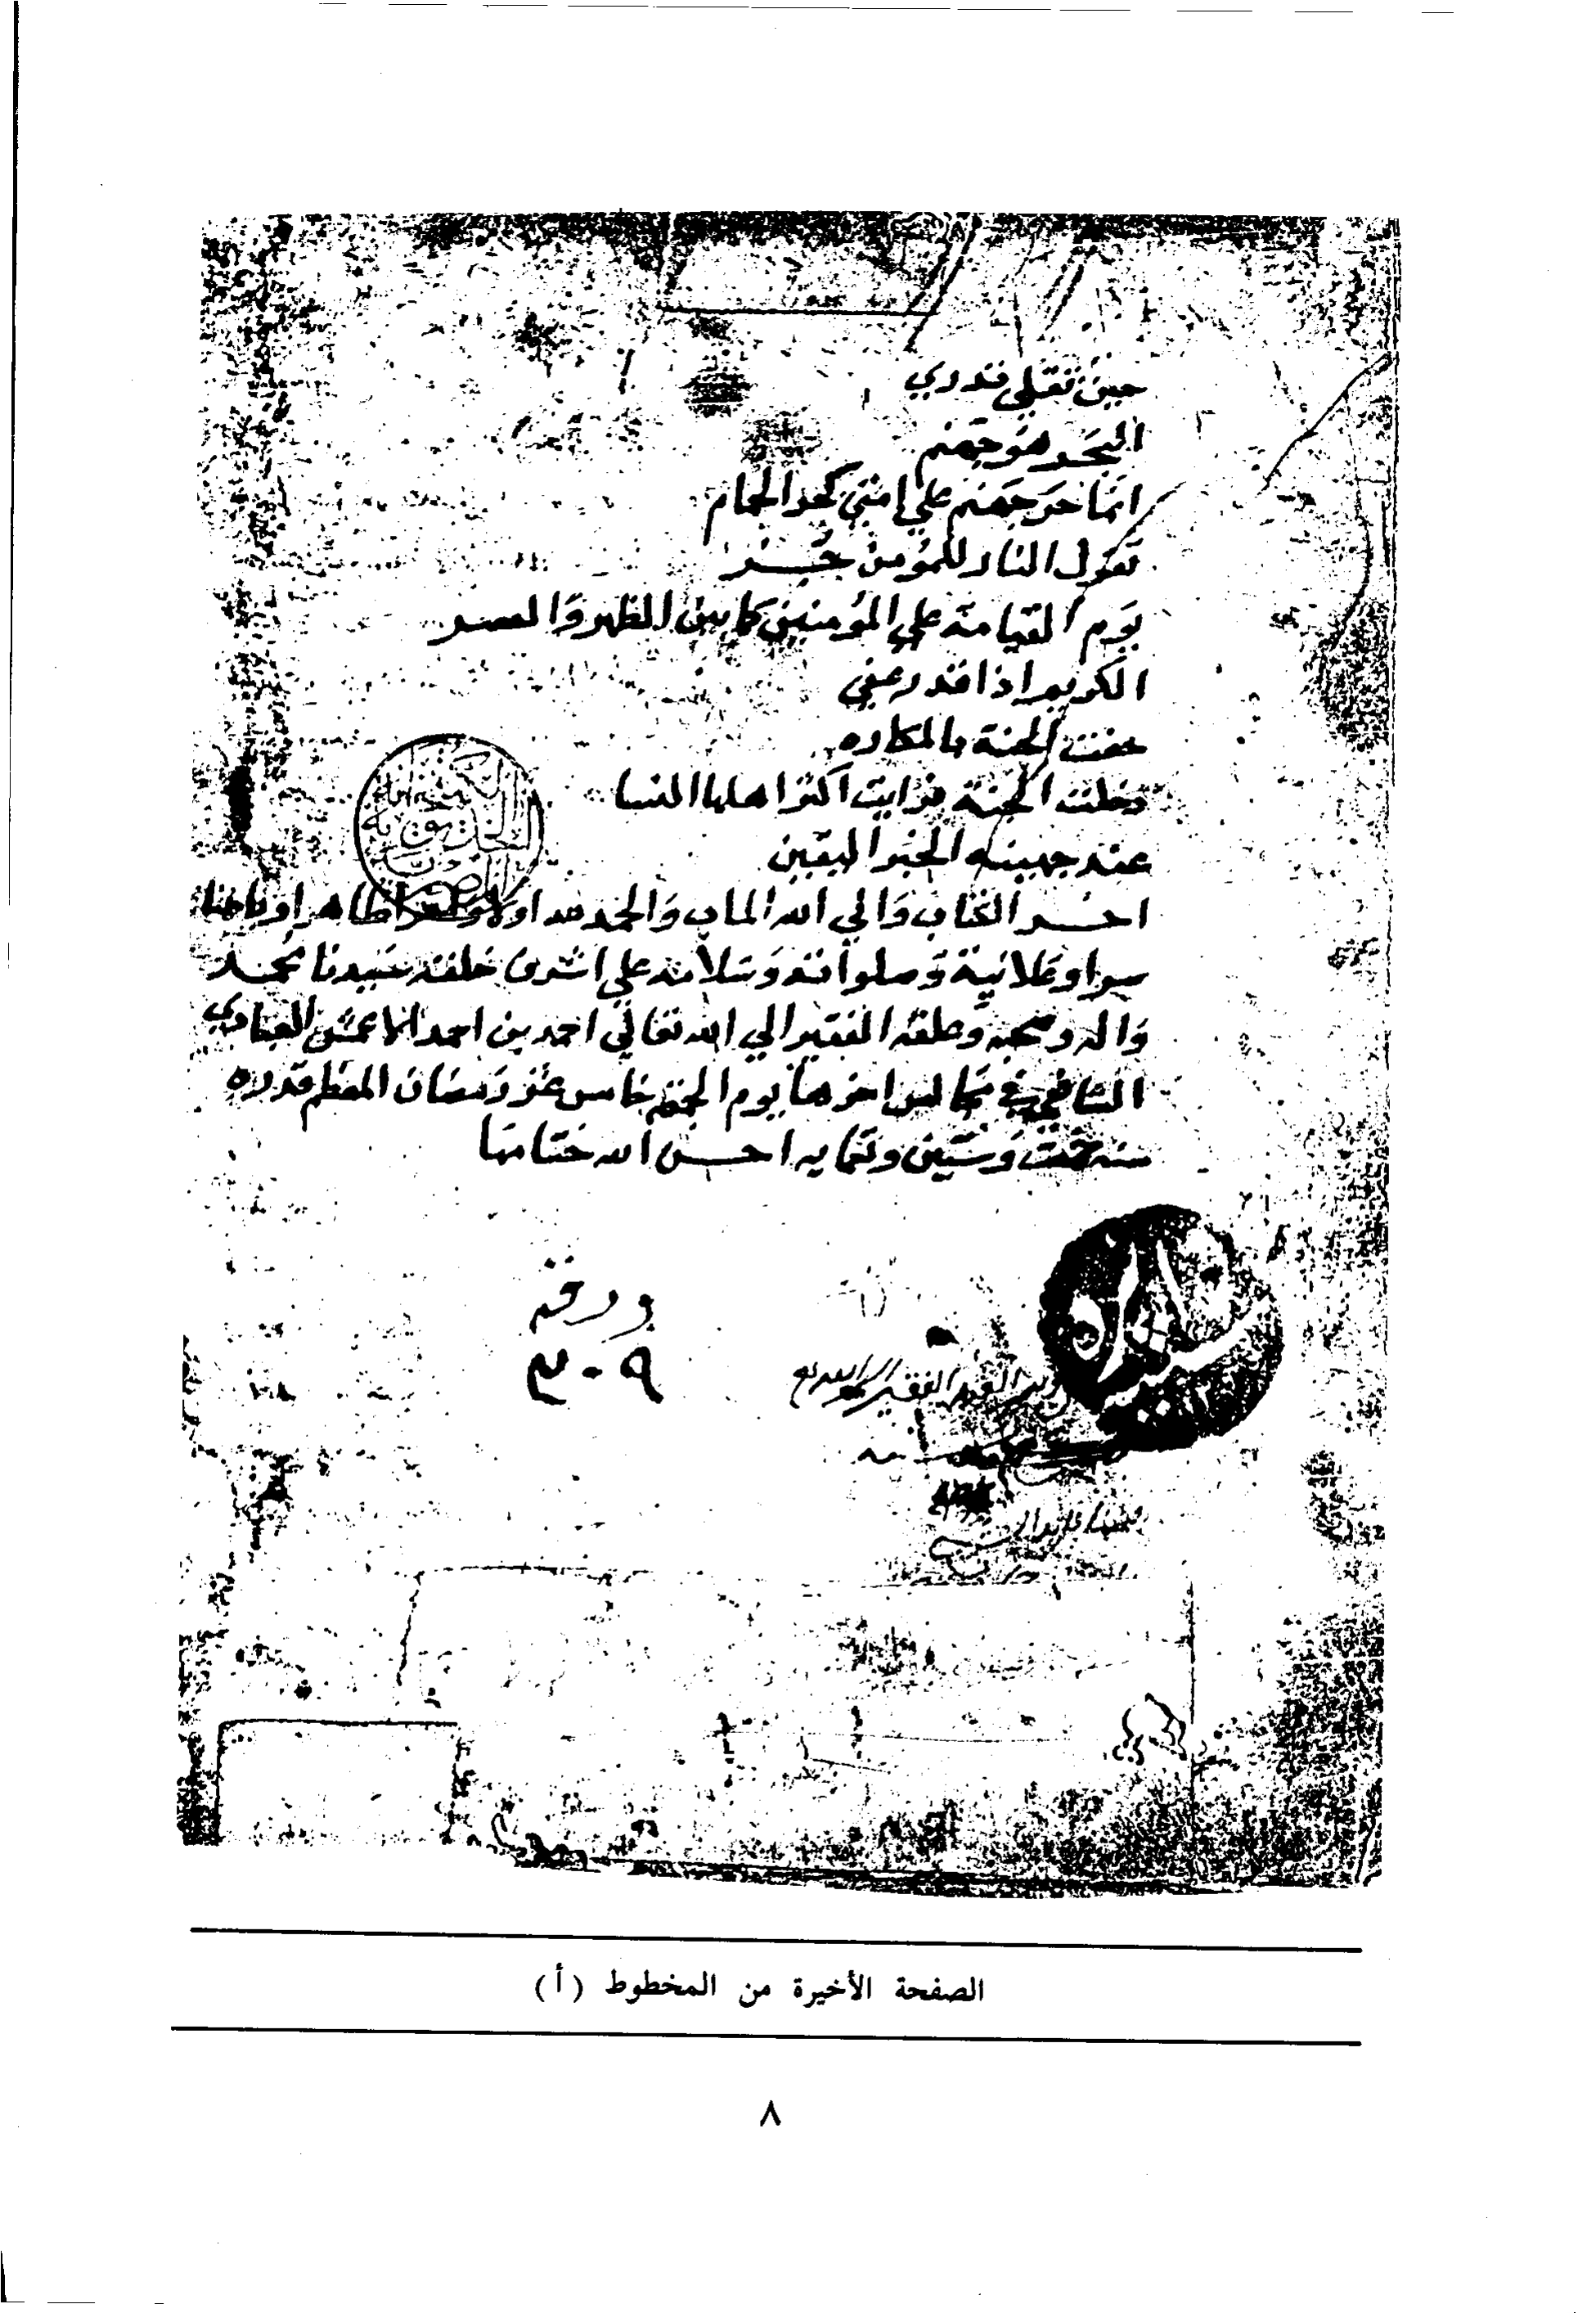 حين تقلي تدري
البحر هو جهنم
انما حر جهنم علي امتي كحر الحمام
تقول النار للمؤمن جُـــز
يَوم القيامة علي المؤمنين كما بين الظهر وَالعصر
الكريم اذا قدر عفي
حفت الجنة بالمكاره
دخلت الجنة فرايت اكثر اهلها النسا
عند جهينه الخبر اليقين
اخـــر الكتاب وَالي الله الماب وَالحمد لله اولا واخرا ظاهرا وباطنا
سرا وعلانية وَصلواته وَسلامه علي اشرف خلقه سَيدنا محمد
وَاله وصحبه وَعلقه الفقير الي الله تعالي احمد بن احمد الاعمش العبادي
الشافعي في مجالس اخرها يوم الجمعه خامس عشر رَمضان المعظم قدره
سنه ست وَستين وثمانيه احسـن الله ختامها
ورقه
٣٠٩
العبد الفقير
الصفحة الأخيرة من المخطوط (أ)
٨